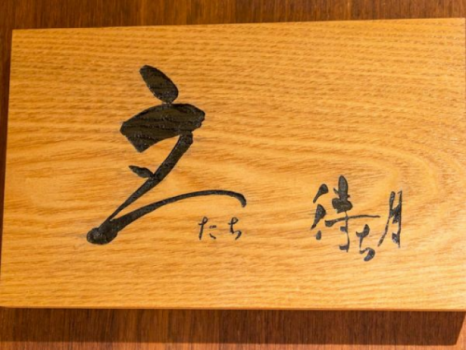 立
たち
待ち月